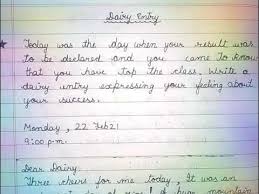 Dairy Entry
Today was the day when your result was
to be declared and you came to know
that you have top the class. Write a
dairy entry expressing your feeling about
your success.
Monday, 22 Feb 21
9:00 p.m.
Dear Dairy,
Three cheers for me today, It was an
of huge mountain